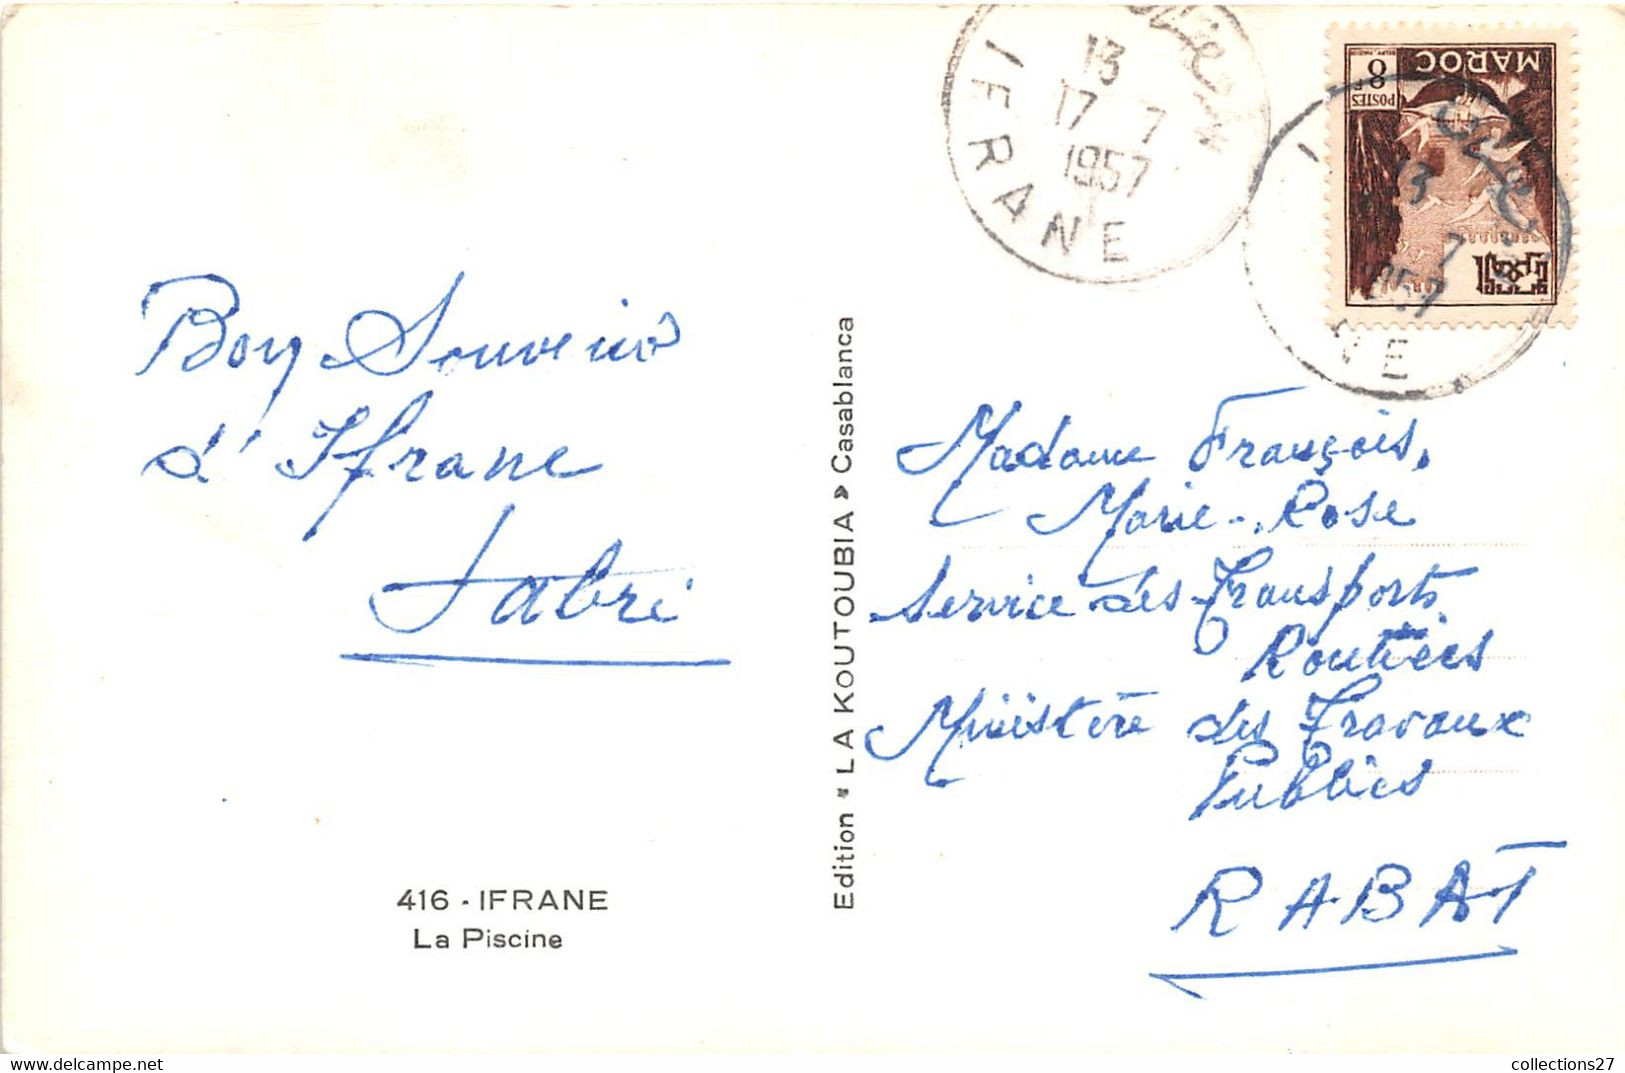 Bon Souvenir
d'Ifrane
Fabri
416 - IFRANE
La Piscine
Edition "LA KOUTOUBIA" Casablanca
13
17 7
1957
IFRANE
MAROC
POSTES
8F
13
7
1957
NE
Madame François,
Marie-Rose
Service des Transports
Routiers
Ministère des Travaux
Publics
RABAT
collections27